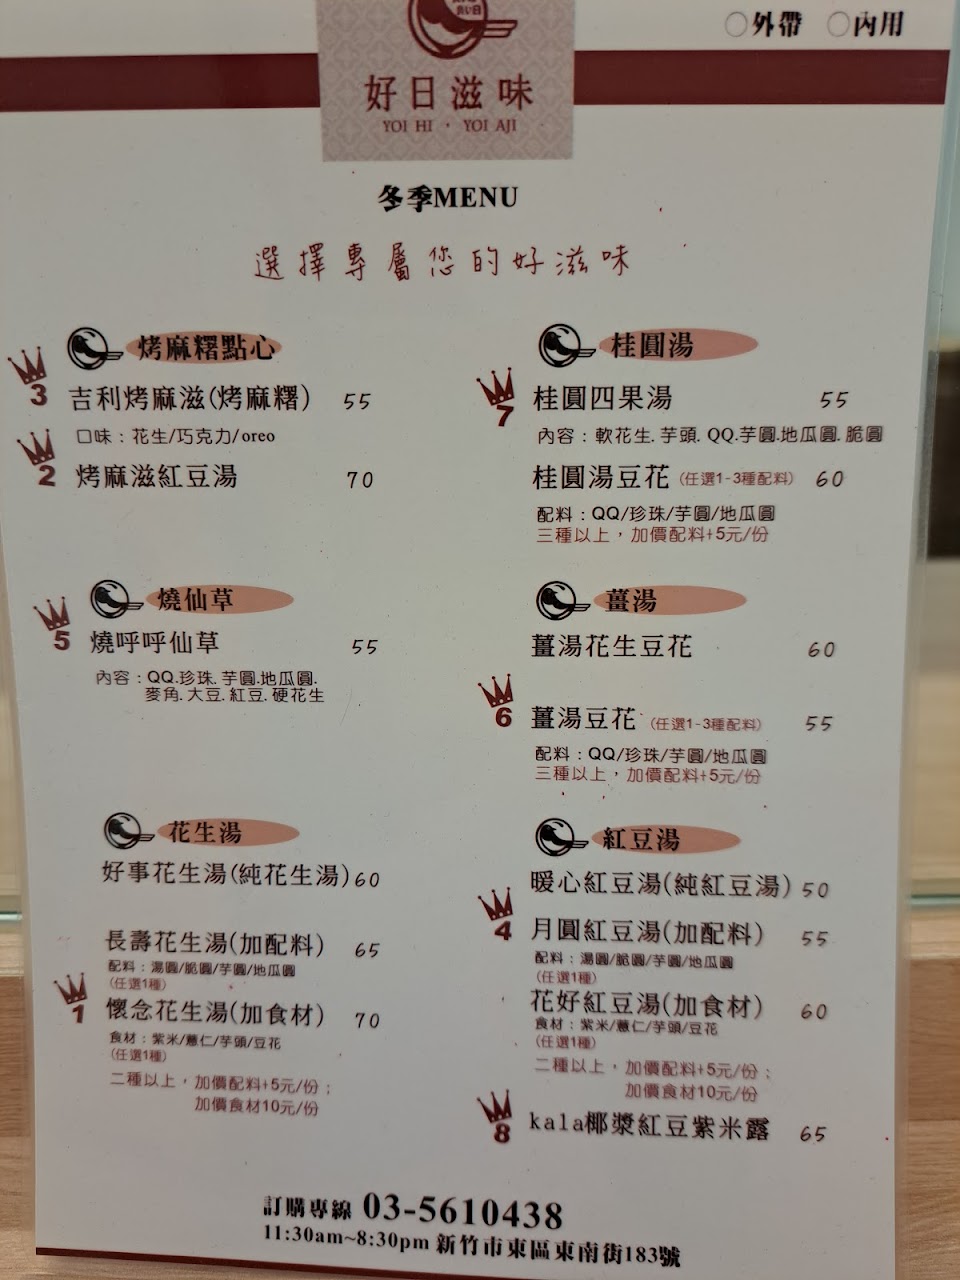 ○外帶 ○內用
好日滋味
YOI HI · YOI AJI
冬季MENU
選擇專屬您的好滋味
烤麻糬點心
3 吉利烤麻滋(烤麻糬) 55
口味：花生/巧克力/oreo
2 烤麻滋紅豆湯 70
燒仙草
5 燒呼呼仙草 55
內容：QQ.珍珠.芋圓.地瓜圓.
麥角.大豆.紅豆.硬花生
花生湯
好事花生湯(純花生湯) 60
長壽花生湯(加配料) 65
配料：湯圓/脆圓/芋圓/地瓜圓
(任選1種)
1 懷念花生湯(加食材) 70
食材：紫米/薏仁/芋頭/豆花
(任選1種)
二種以上，加價配料+5元/份；
加價食材10元/份
桂圓湯
7 桂圓四果湯 55
內容：軟花生.芋頭.QQ.芋圓.地瓜圓.脆圓
桂圓湯豆花(任選1-3種配料) 60
配料：QQ/珍珠/芋圓/地瓜圓
三種以上，加價配料+5元/份
薑湯
薑湯花生豆花 60
6 薑湯豆花(任選1-3種配料) 55
配料：QQ/珍珠/芋圓/地瓜圓
三種以上，加價配料+5元/份
紅豆湯
暖心紅豆湯(純紅豆湯) 50
4 月圓紅豆湯(加配料) 55
配料：湯圓/脆圓/芋圓/地瓜圓
(任選1種)
花好紅豆湯(加食材) 60
食材：紫米/薏仁/芋頭/豆花
(任選1種)
二種以上，加價配料+5元/份；
加價食材10元/份
8 kala椰漿紅豆紫米露 65
訂購專線 03-5610438
11:30am~8:30pm 新竹市東區東南街183號